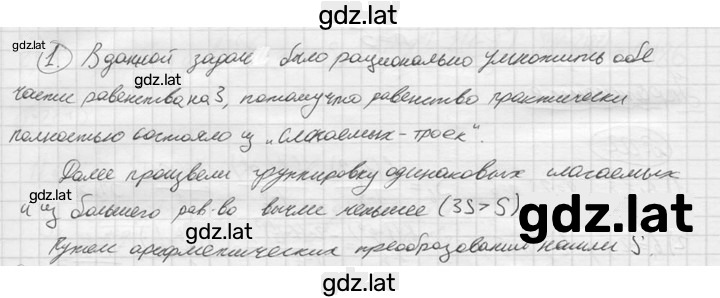 gdz.lat
gdz.lat
1. В данной задаче было рационально умножить обе
gdz.lat
части равенства на 3, потому что равенство практически
полностью состояло из „слагаемых-троек".
Далее произвели группировку одинаковых слагаемых
gdz.lat
и из большего рав-во вычли меньшее (3S > S)
gdz.lat
Путем арифметических преобразований нашли S.
gdz.lat